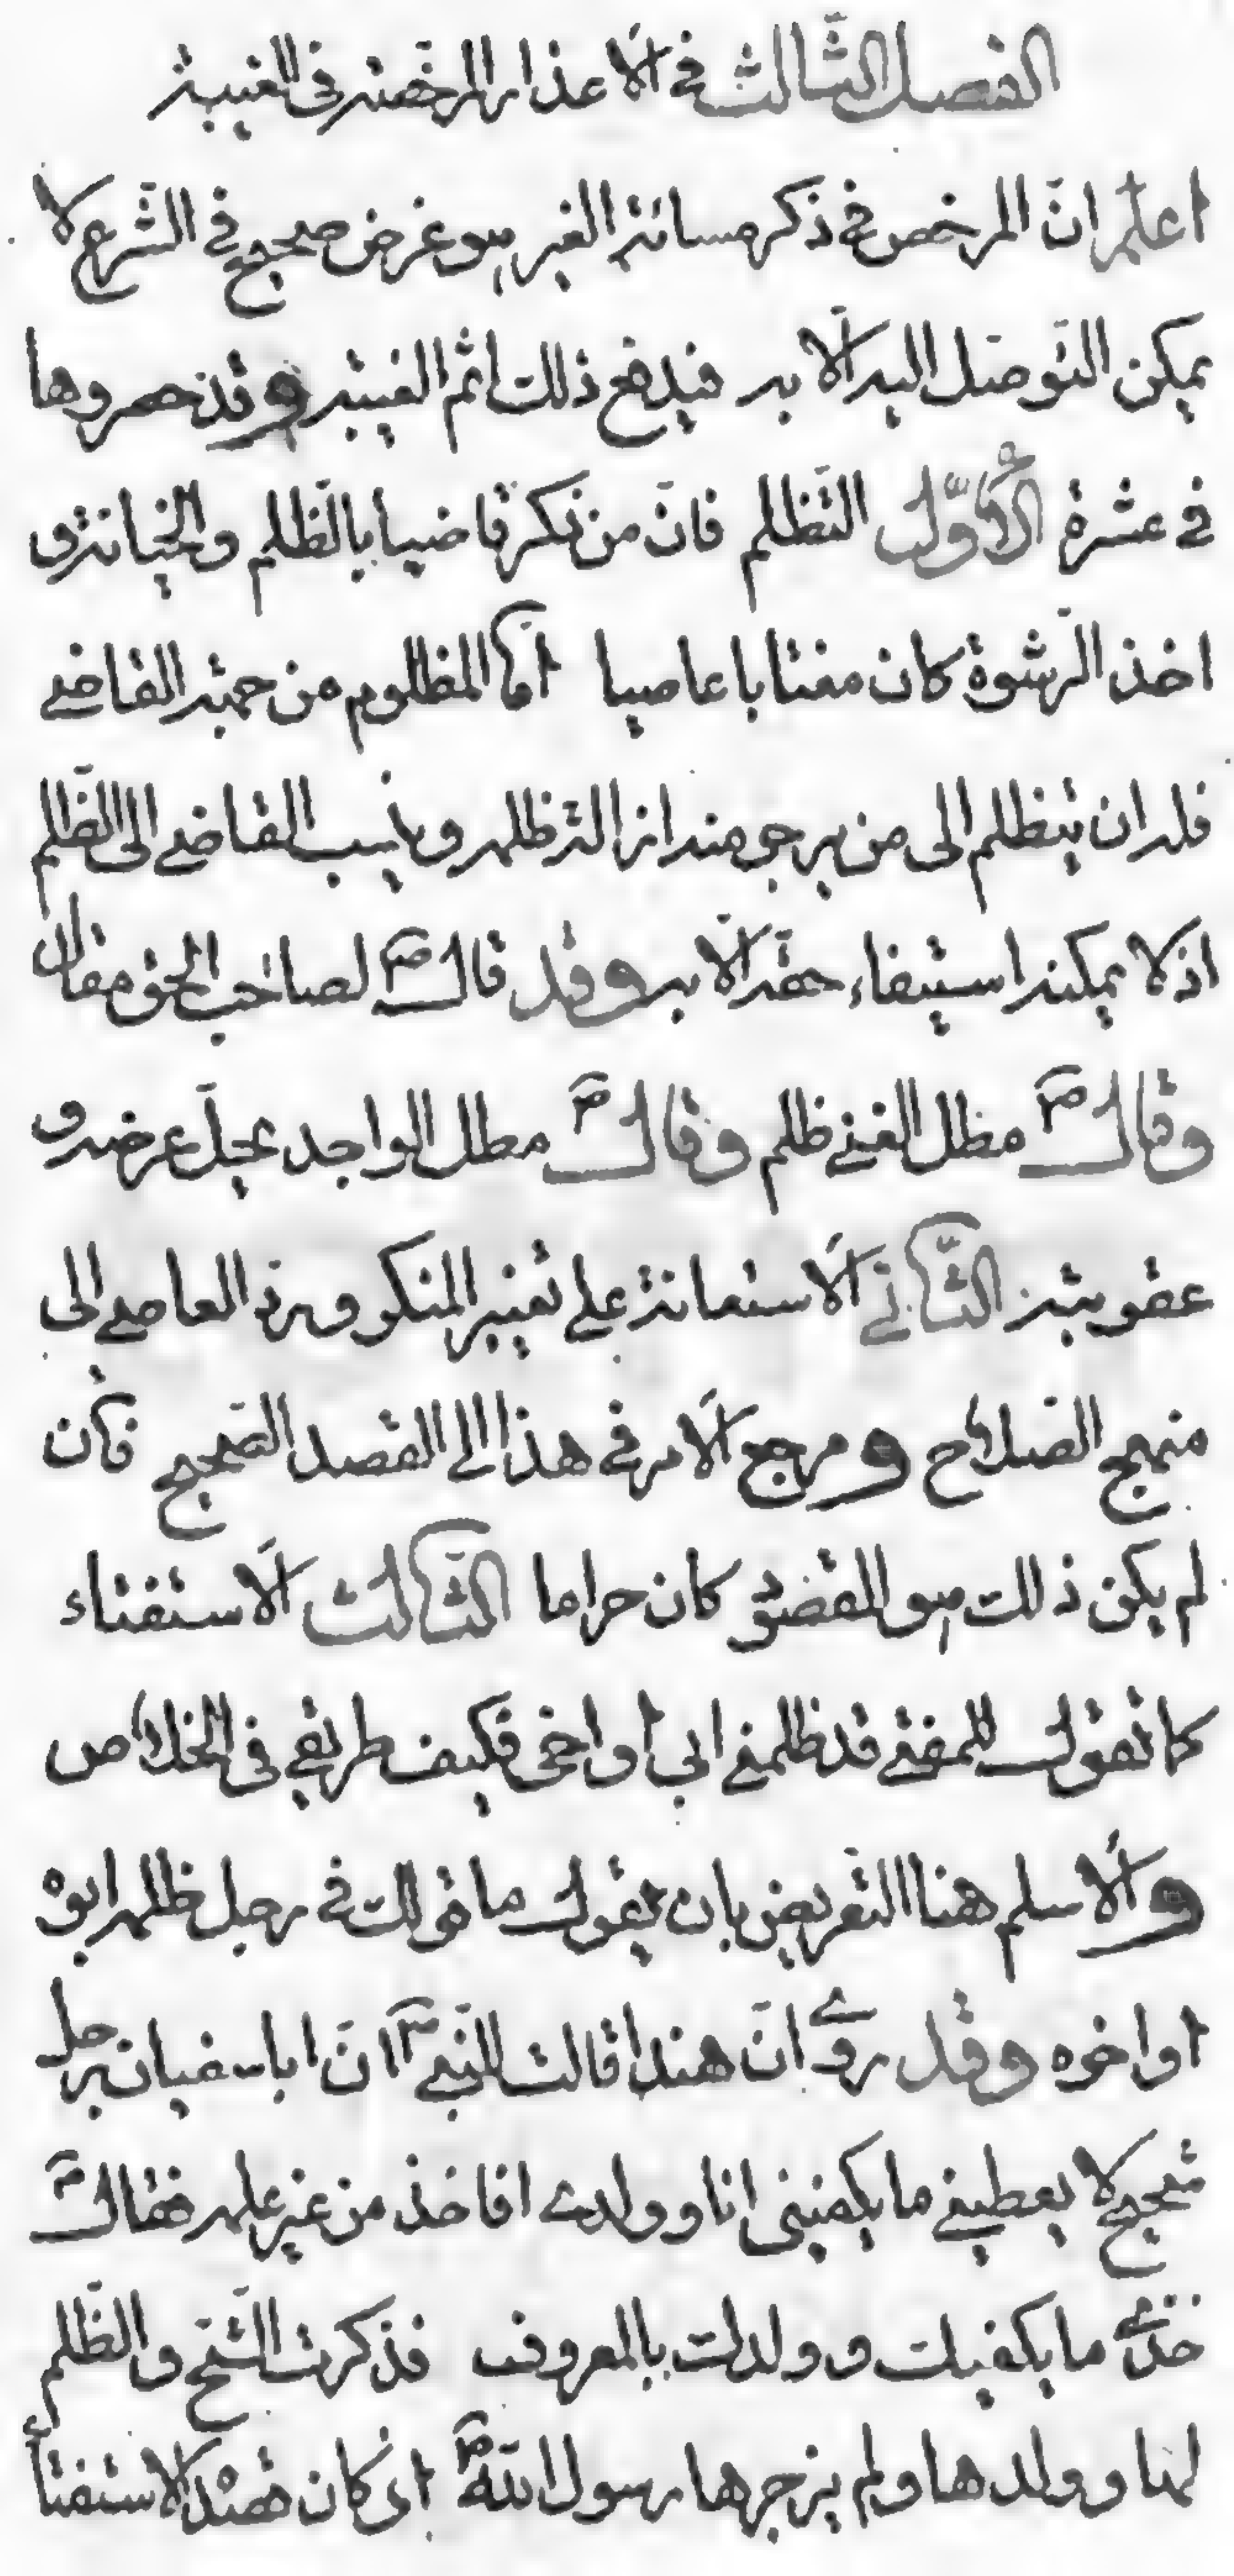 الفصل الثّالث في الاعذار المرخّصة في الغيبة
اعلم انّ المرخص في ذكر مسائة الغير هو غرض صحيح في الشّرع لا
يمكن التّوصّل اليه الّا به فيدفع ذلك اثم الغيبة وقد حصروها
في عشرة الأوّل التّظلم فانّ من ذكر قاضيا بالظّلم والخيانة و
اخذ الرّشوة كان مغتابا عاصيا امّا المظلوم من جهة القاضي
فله ان يتظلم الى من يرجو منه ازالة ظلمه وينسب القاضي الى الظّلم
اذ لا يمكنه استيفاء حقّه الّا به وقد قال ص لصاحب الحق مقال
وقال ص مطل الغني ظلم وقال ص مطل الواجد يحلّ عرضه و
عقوبته الثّاني الاستعانة على تغيير المنكر وردّ العاصي الى
منهج الصّلاح ومرجع الامر في هذا الى القصد الصّحيح فان
لم يكن ذلك هو المقصود كان حراما الثّالث الاستفتاء
كما تقول للمفتي قد ظلمني ابي او اخي فكيف طريقي في الخلاص
والاسلم هنا التّعريض بان يقول ما قولك في رجل ظلمه ابوه
او اخوه وقد روي انّ هندا قالت للنّبي ص انّ ابا سفيان رجل
شحيح لا يعطيني ما يكفيني انا وولدي افاخذ من غير علمه فقال ص
خذي ما يكفيك وولدك بالمعروف فذكرت الشّحّ والظّلم
لها وولدها ولم يزجرها رسول الله ص اذ كان قصدها الاستفتأ